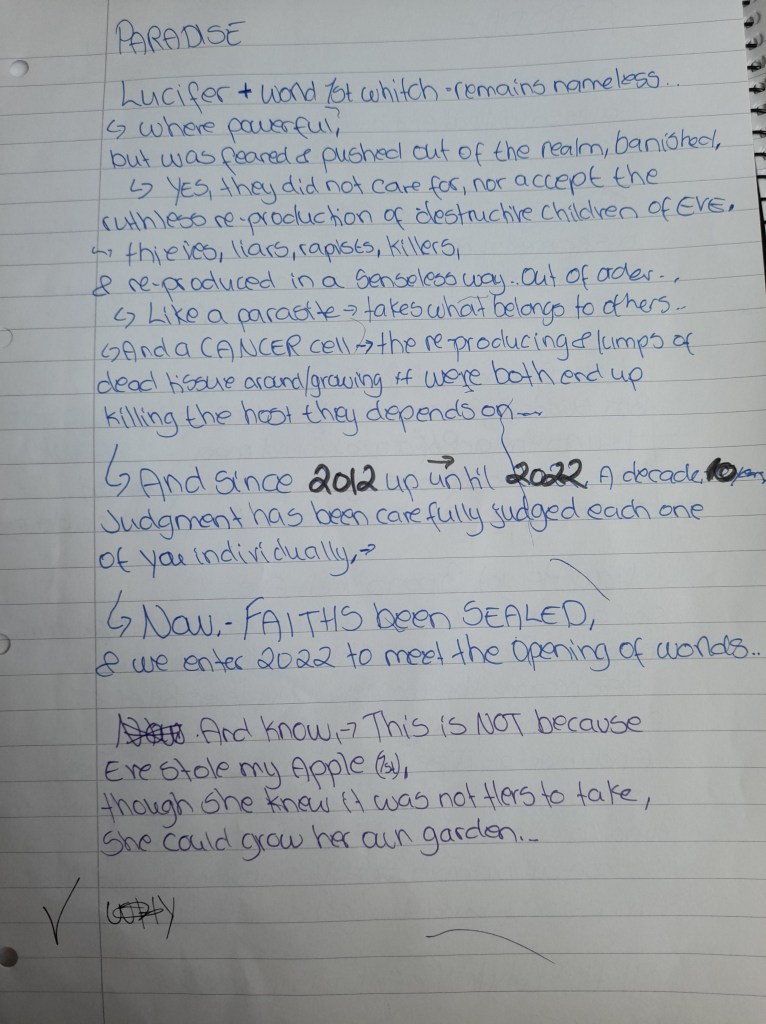 PARADISE
Lucifer + world 1st whitch - remains nameless..
↳ where powerful,
but was feared & pushed out of the realm, banished,
↳ YES, they did not care for, nor accept the
ruthless re-production of destructive children of EVE.
↳ thieves, liars, rapists, killers,
& re-produced in a senseless way.. out of order..,
↳ Like a parasite → takes what belongs to others..
↳ And a CANCER cell → the re-producing & lumps of
dead tissue around/growing it were both end up
killing the host they depends on
↳ And since 2012 up → until 2022 A decade, 10
Judgment has been carefully judged each one
of you individually, →
↳ Now.- FAITHS been SEALED,
& we enter 2022 to meet the opening of worlds..
And know, → This is NOT because
Eve stole my Apple (1st),
though she knew it was not Hers to take,
she could grow her own garden...